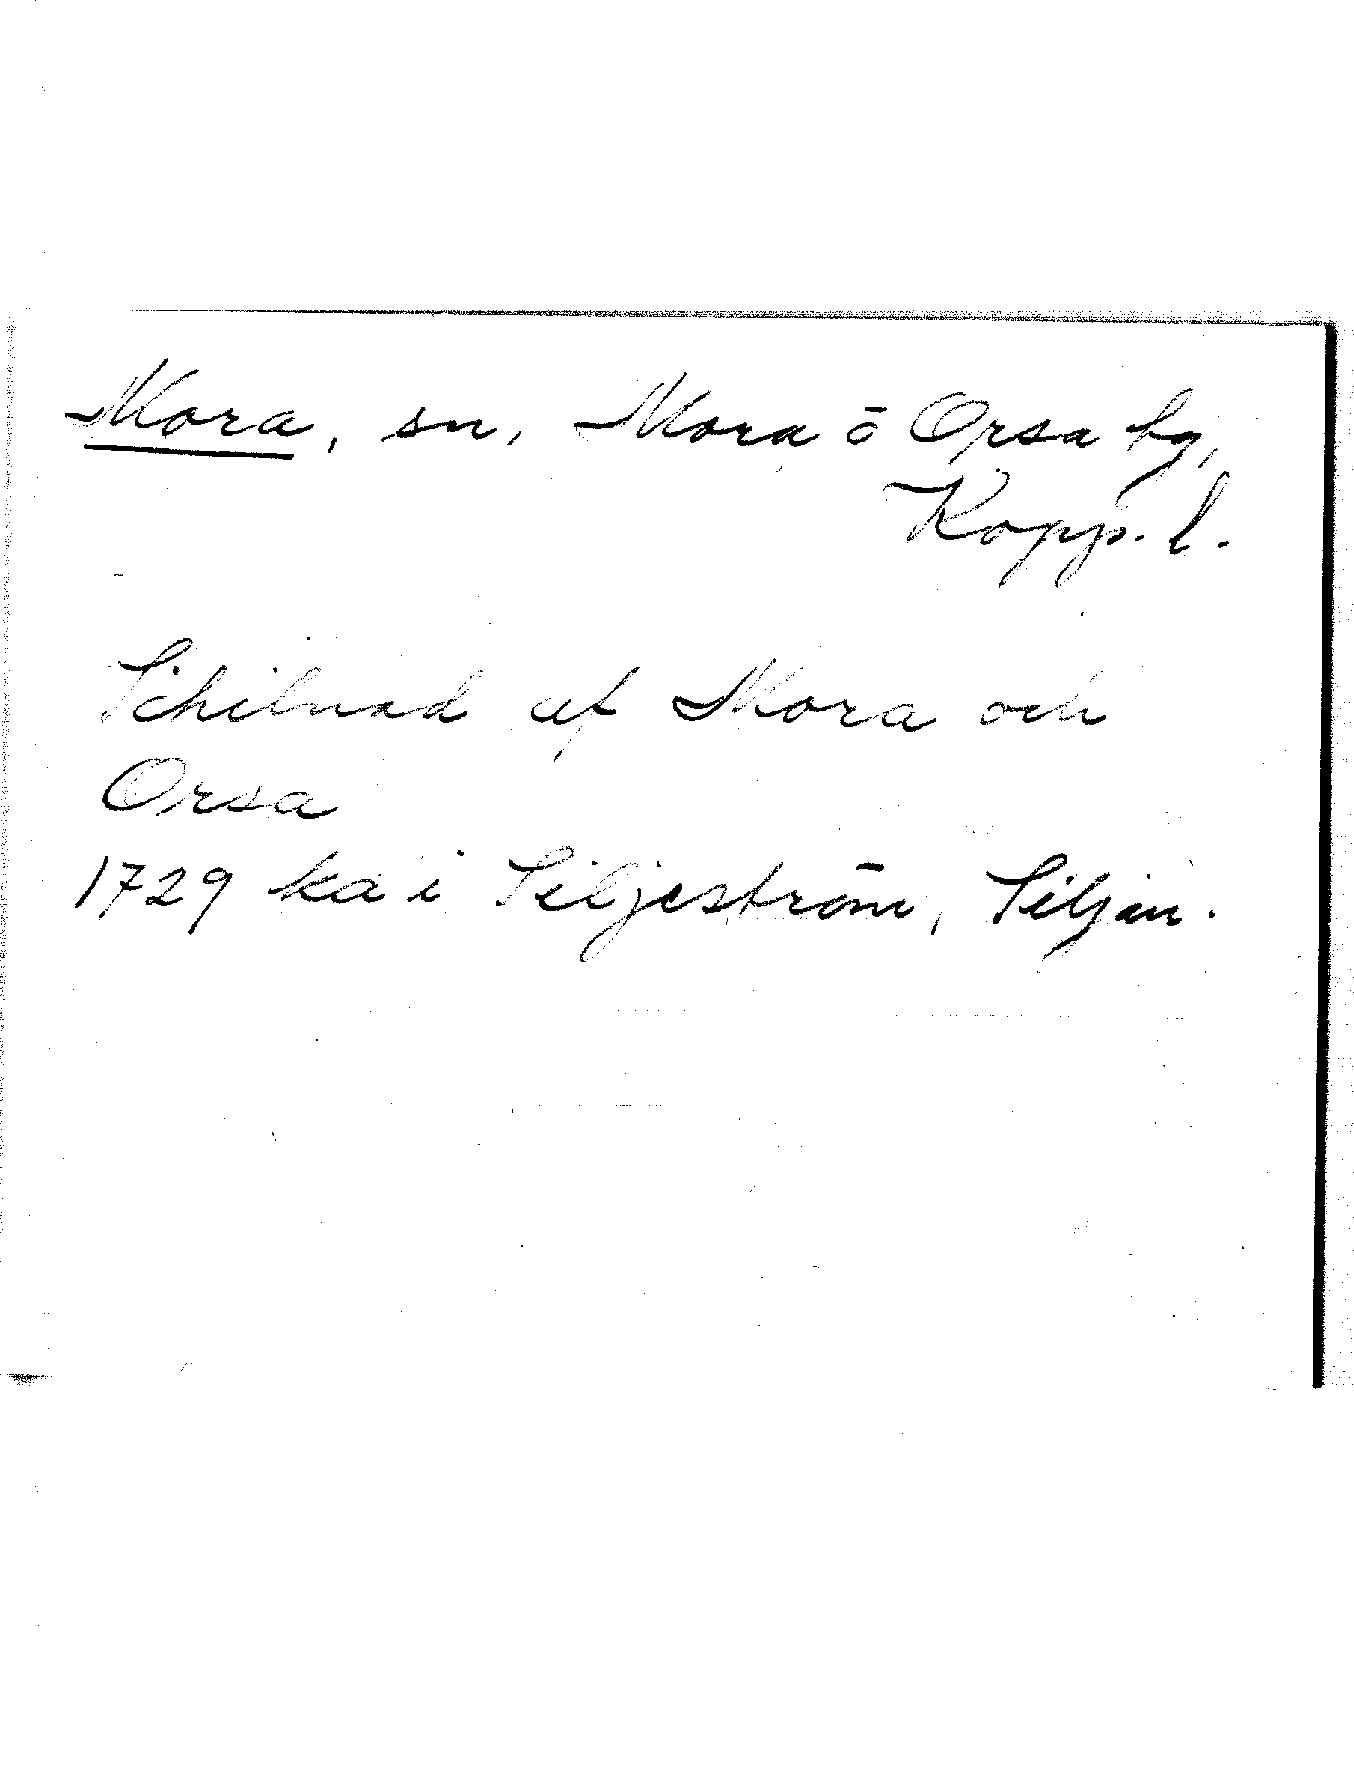 Mora, sn, Mora o Orsa tg,
Kopp. l.
Schilnad af Mora och
Orsa
1729 ka i Siljeström, Siljan.